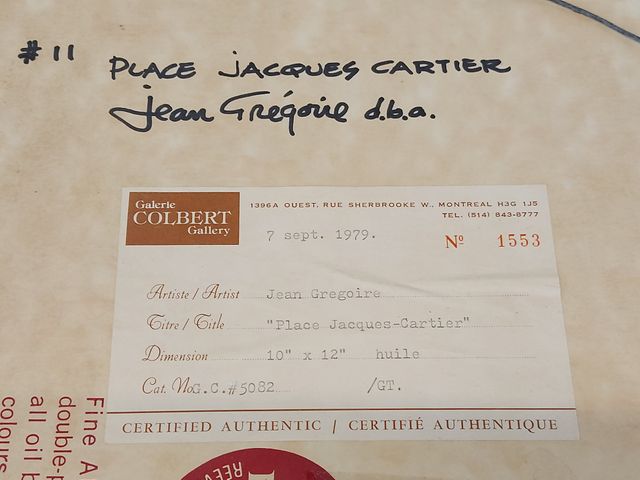 #11 PLACE JACQUES CARTIER
Jean Grégoire d.b.a.
Galerie
COLBERT
Gallery
1396A OUEST, RUE SHERBROOKE W., MONTREAL H3G 1J5
TEL. (514) 843-8777
7 sept. 1979.
Nº 1553
Artiste / Artist Jean Gregoire
Titre / Title "Place Jacques-Cartier"
Dimension 10" x 12" huile
Cat. No. G.C.#5082 /GT.
CERTIFIED AUTHENTIC / CERTIFIÉ AUTHENTIQUE
Fine A
double-p
all oil b
colours
REEV